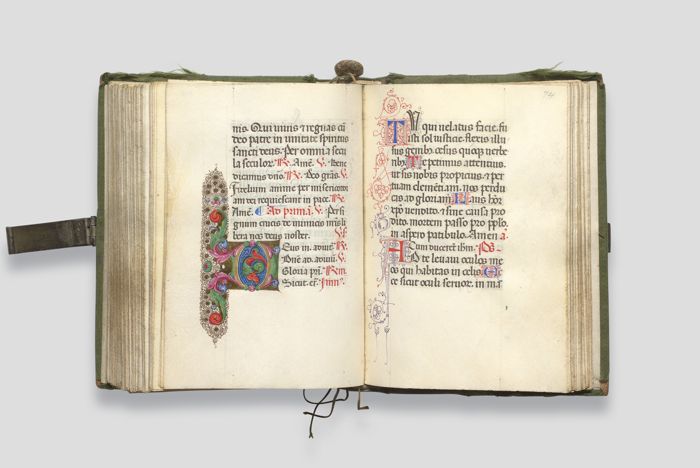 nis. Qui vivis et regnas cū
deo patre in unitate spiritus
sancti deus. Per omnia secu
la seculor. ℟. Amē. ℣. Bene
dicamus dn̄o. ℟. Deo grās. ℣.
Fidelium anime per misericord
am dei requiescant in pace. ℟.
Amē. Ad primā. ℣. Per si
gnum crucis de inimicis nr̄is li
bera nos deus noster. ℣.
Deus in adiut. ℟.
Dn̄e ad adiuu. ℣.
Gloria pr̄i. ℟.
Sicut er̄. ymn
74
Tu qui velatus facie. fu
isti sol iusticie. flexis illu
sus genib. cesus quoq verbe
rib. Te petimus attentius.
ut sis nobis propicius. et per
tuam clementiam. nos perdu
cas ad gloriam. Laus hōr
xp̄o vendito. et sine causa pro
dito. mortem passo pro pp̄lo.
in aspero patibulo. Amen. a.
Cum duceret ihm. ps.
Ad te levavi oculos me
os qui habitas in celis. Ec
ce sicut oculi servor. in ma